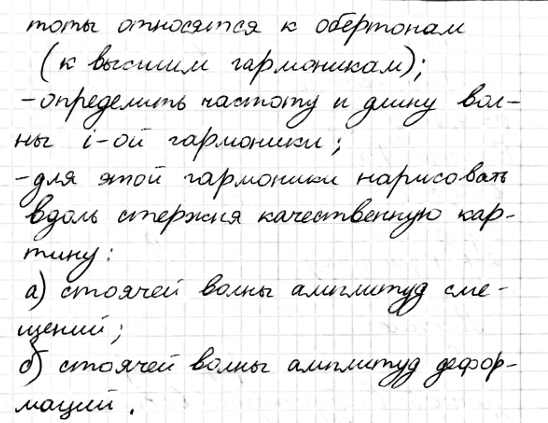 тоты относятся к обертонам
(к высшим гармоникам);
-определить частоту и длину вол-
ны i-ой гармоники;
-для этой гармоники нарисовать
вдоль стержня качественную кар-
тину:
а) стоячей волны амплитуд сме-
щений;
б) стоячей волны амплитуд дефор-
маций.